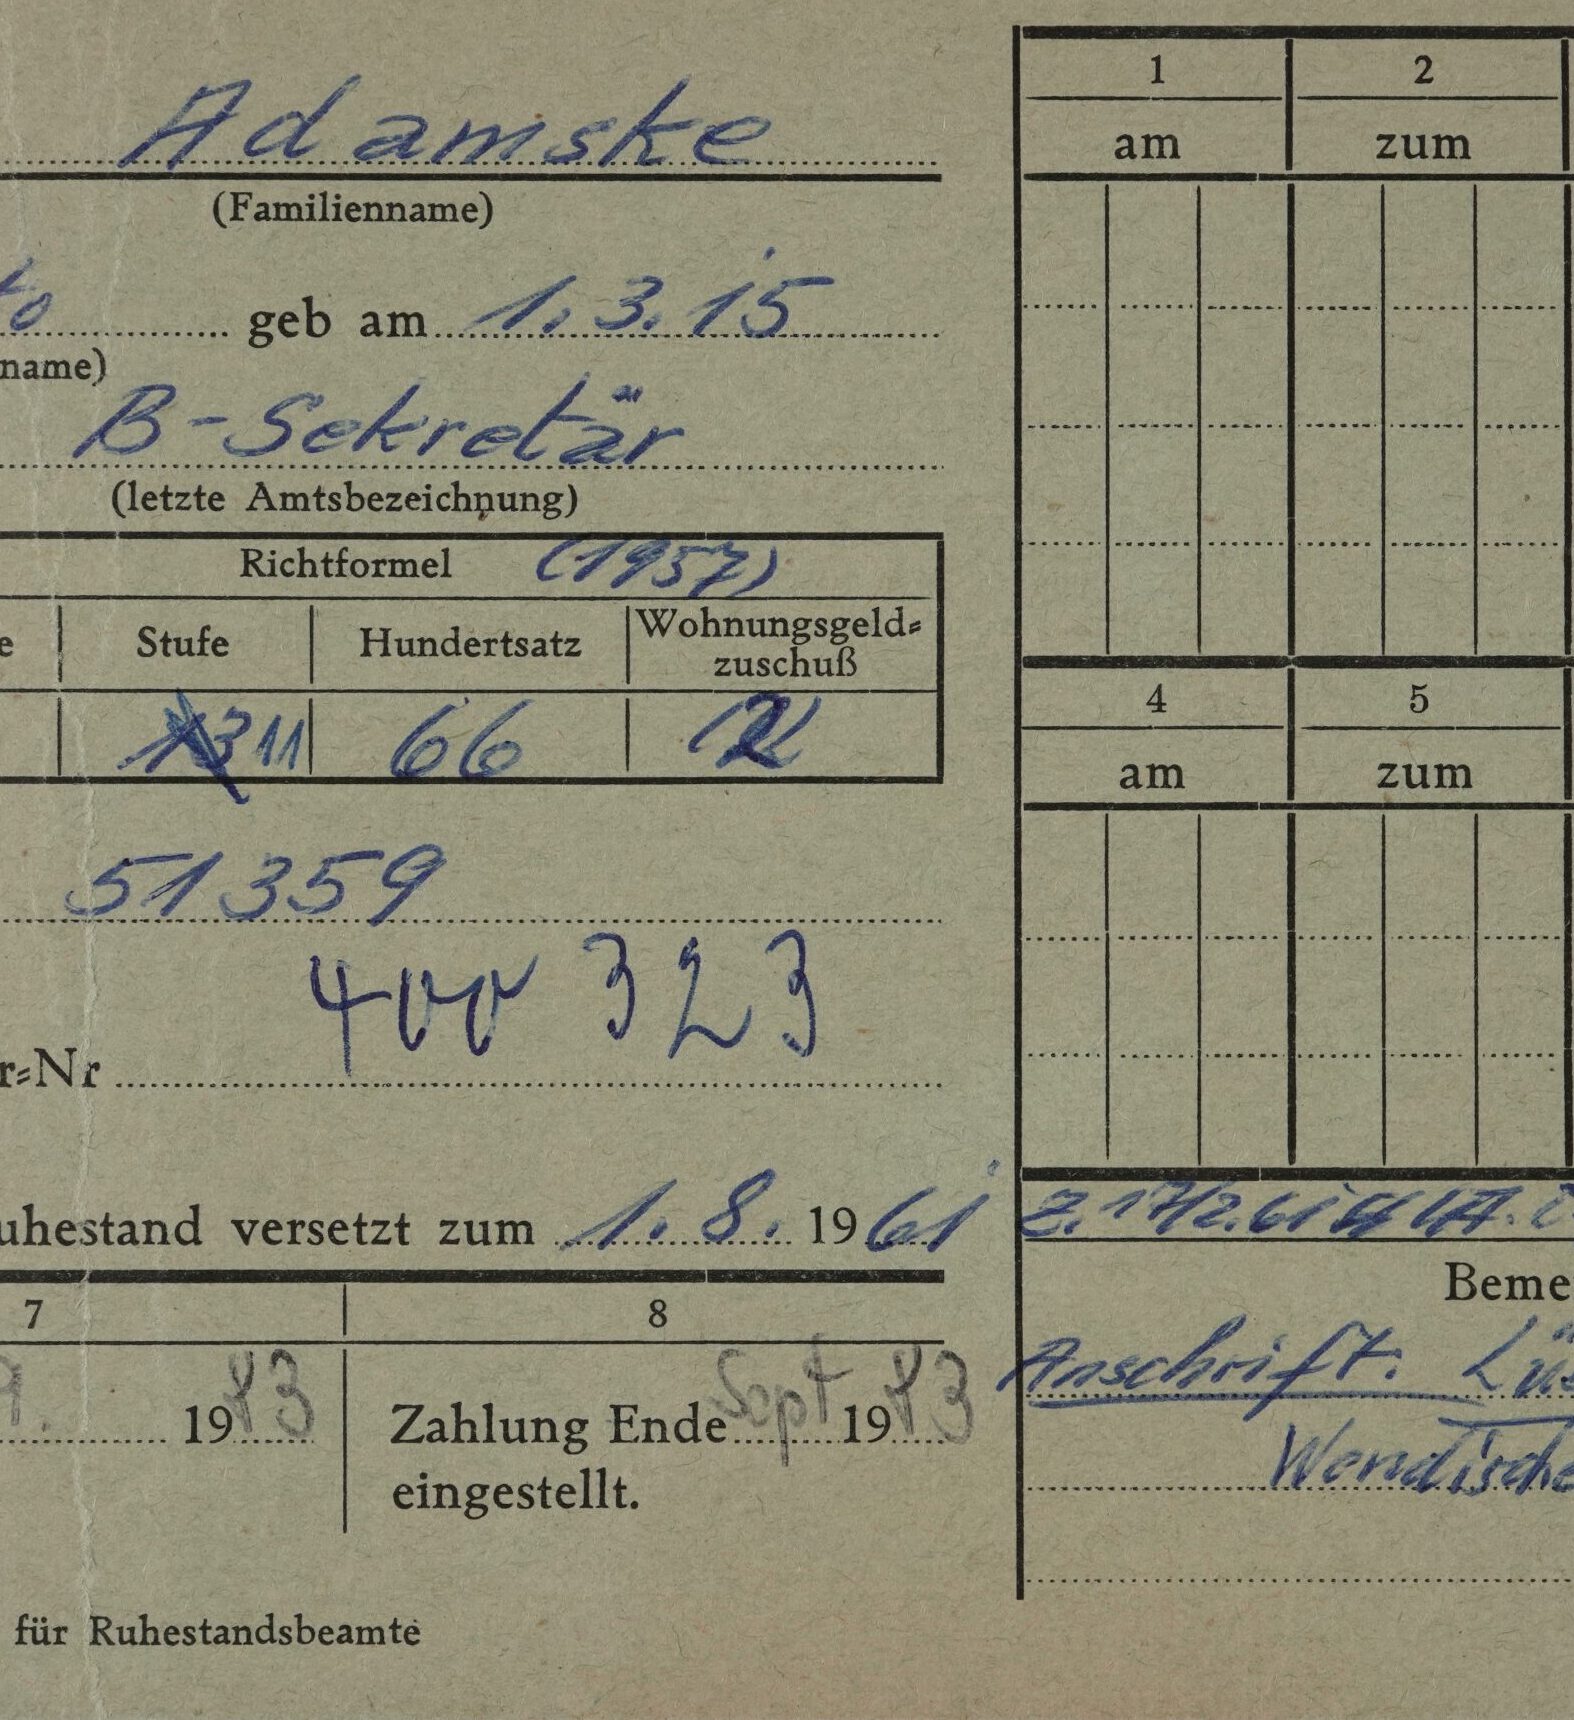 Adamske
(Familienname)
geb am 1.3.15
name)
B-Sekretär
(letzte Amtsbezeichnung)
Richtformel (1957)
e Stufe Hundertsatz Wohnungsgeld=
zuschuß
13 11 66
51359
400 323
r=Nr
uhestand versetzt zum 1. 8. 1961
7 8
1983 Zahlung Ende Sept 1983
eingestellt.
für Ruhestandsbeamte
1 2
am zum
4 5
am zum
Beme
Anschrift: Lü
Wendische